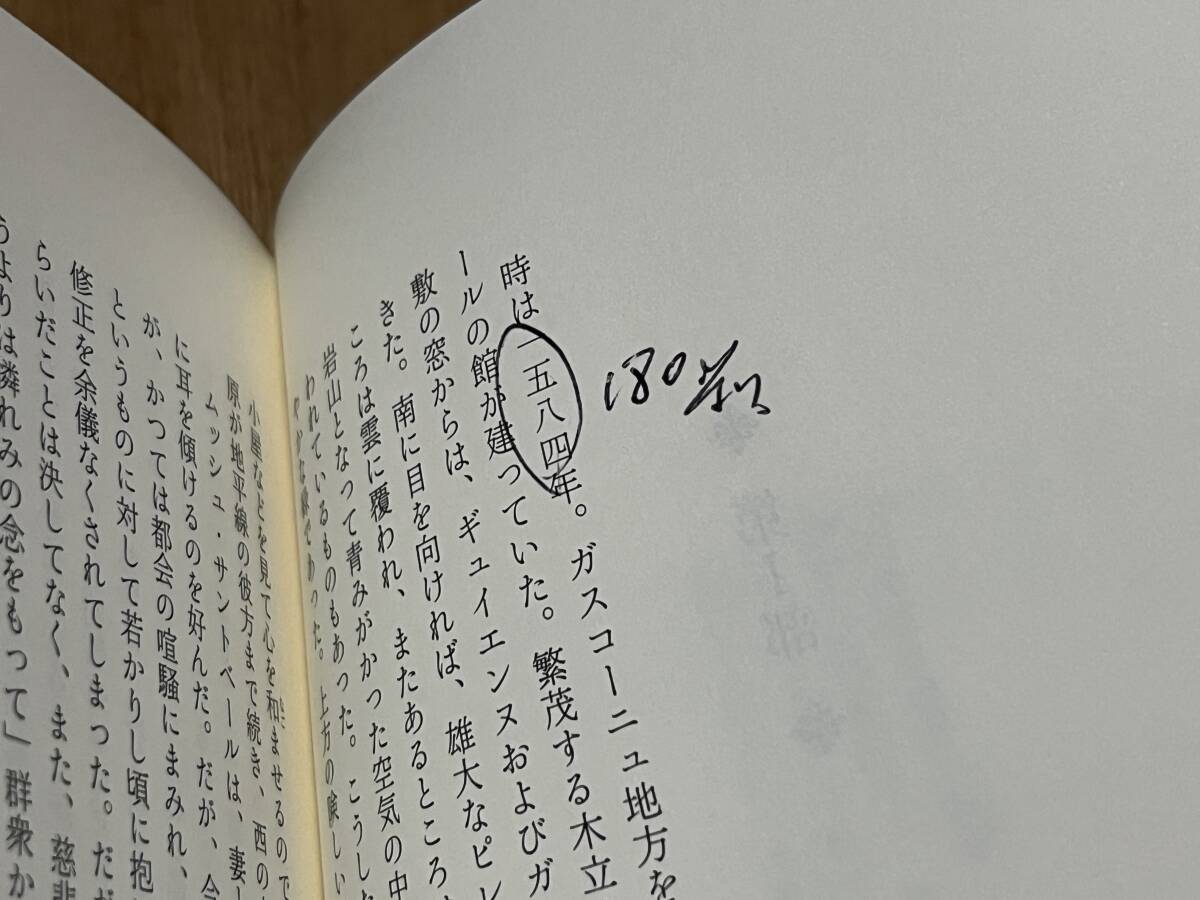 180
時は一五八四年。ガスコーニュ地方を
ールの館が建っていた。繁茂する木立
敷の窓からは、ギュイエンヌおよびガ
きた。南に目を向ければ、雄大なピレ
ころは雲に覆われ、またあるところ
岩山となって青みがかった空気の中
われているものもあった。こうした
であった。上方の険しい
小屋などを見て心を和ませるので
原が地平線の彼方まで続き、西の
ムッシュ・サントベールは、妻
に耳を傾けるのを好んだ。だが、今
が、かつては都会の喧騒にまみれ、
というものに対して若かりし頃に抱
修正を余儀なくされてしまった。だが
らいだことは決してなく、また、慈悲
うよりは憐れみの念をもって」群衆か